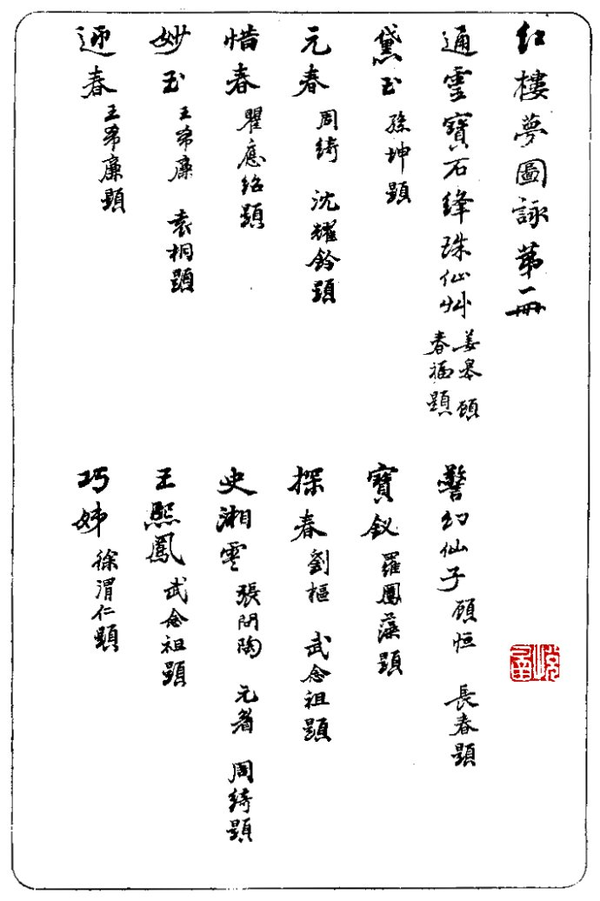 紅樓夢圖詠第一冊
通靈寶石絳珠仙艸 姜皋 顧春福題
警幻仙子 顧恒 長春題
黛玉 孫坤題
寶釵 羅鳳藻題
元春 周綺 沈耀鈴題
探春 劉樞 武念祖題
惜春 瞿應紹題
史湘雲 張問陶 元眘 周綺題
妙玉 王希廉 袁桐題
王熙鳳 武念祖題
迎春 王希廉題
巧姊 徐渭仁題